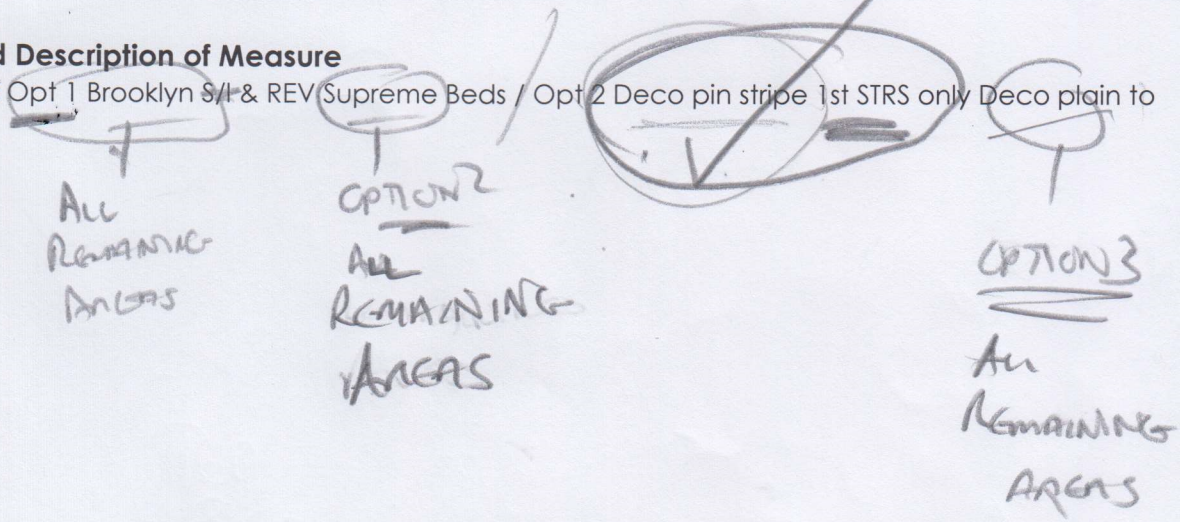 d Description of Measure
Opt 1 Brooklyn S/I & REV Supreme Beds / Opt 2 Deco pin stripe 1st STRS only Deco plain to
ALL
REMAINING
AREAS
OPTION 2
ALL
REMAINING
AREAS
OPTION 3
ALL
REMAINING
AREAS